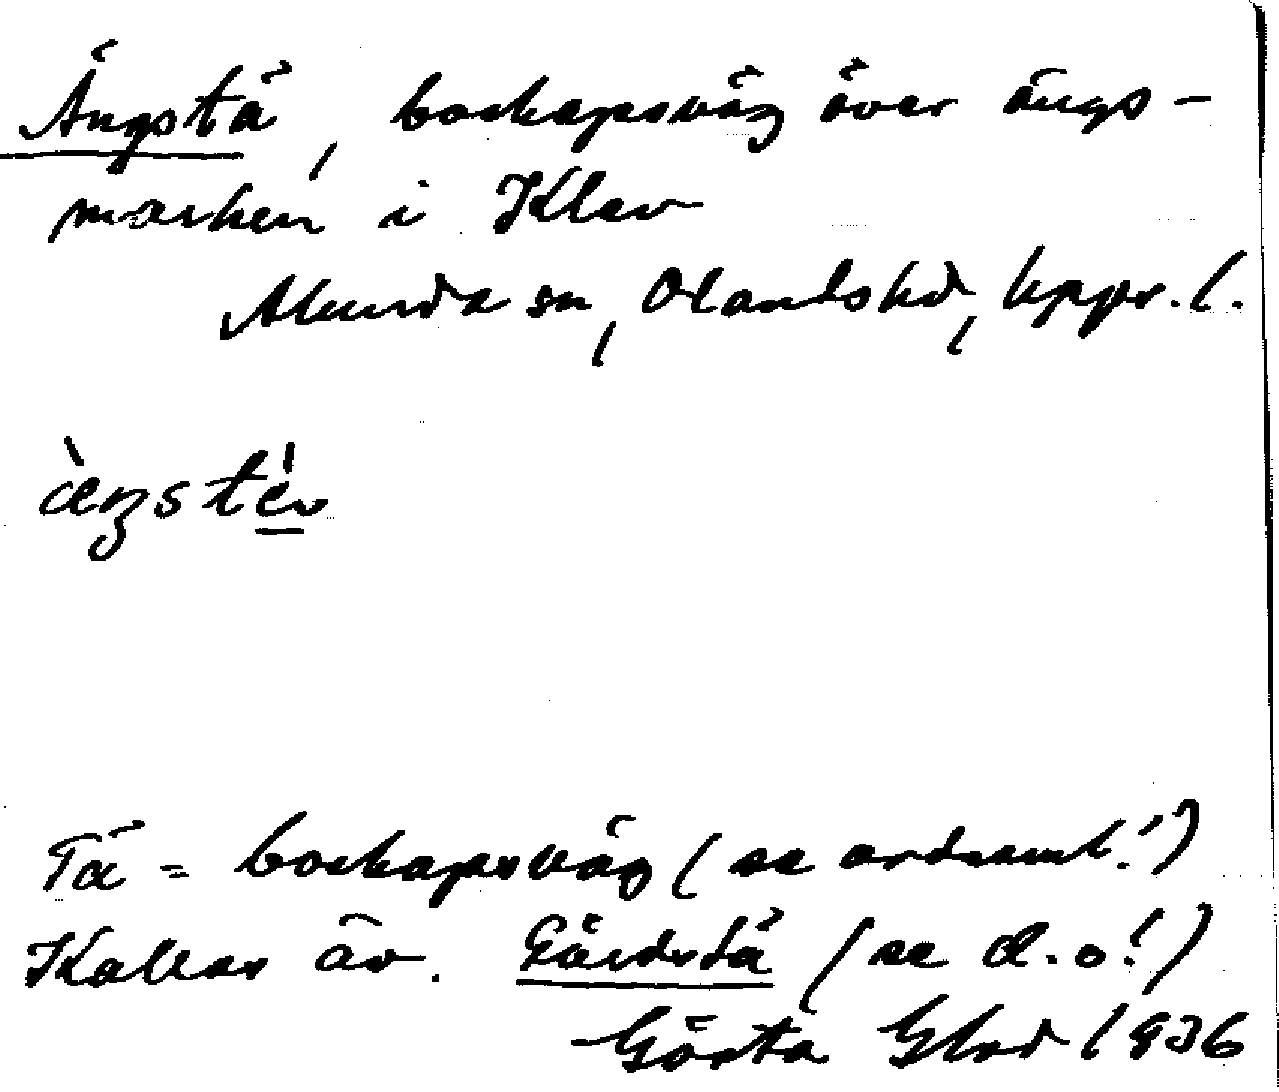 Ängstä, boskapsväg över ängs-
marken i Klev
Alunda sn, Olands hd, Uppl.
Tä = boskapsväg (se ordsaml.!)
Kallas äv. Gärdstä (se d.o.!)
Gösta Glad 1936